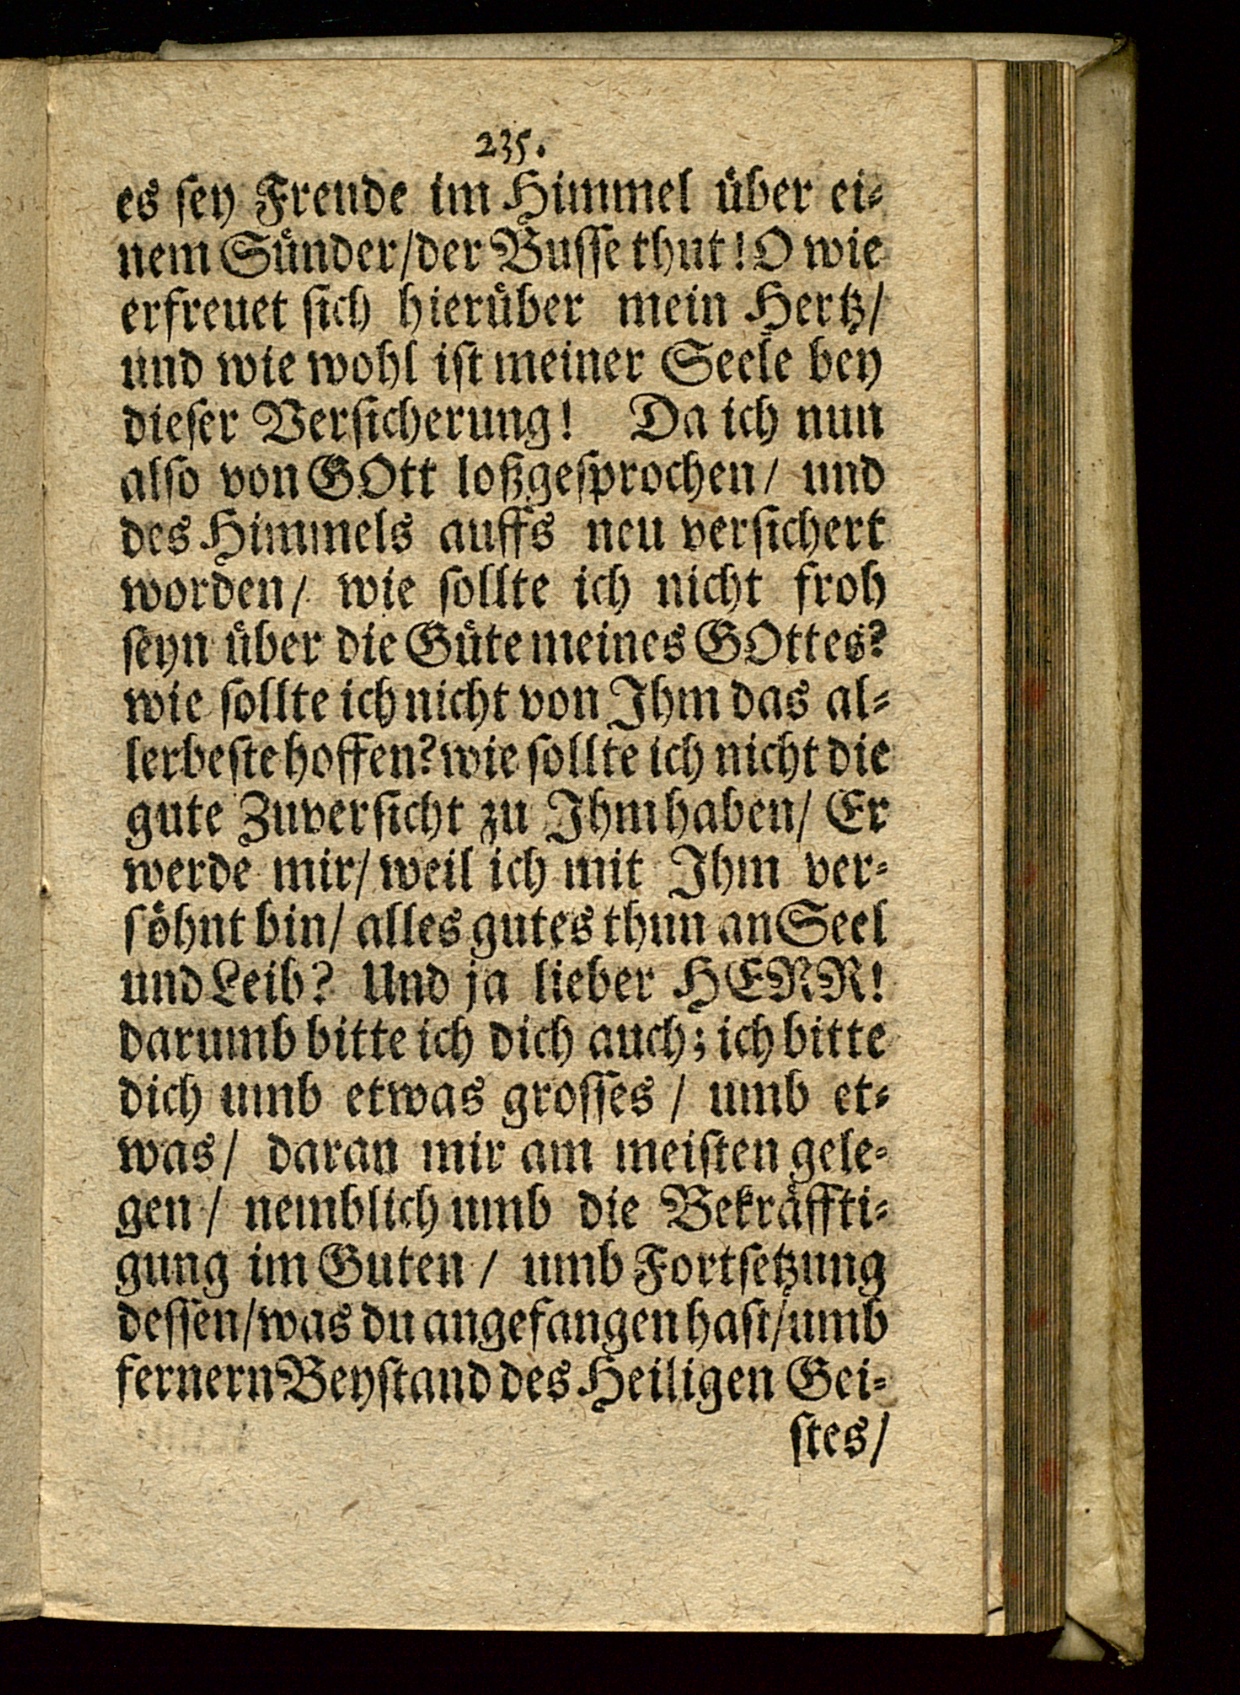 235.
es ſey Freude im Himmel uͤber ei⸗
nem Suͤnder/der Buſſe thut! O wie
erfreuet ſich hieruͤber mein Hertz/
und wie wohl iſt meiner Seele bey
dieſer Verſicherung! Da ich nun
alſo von GOtt loßgeſprochen/ und
des Himmels auffs neu verſichert
worden/ wie ſollte ich nicht froh
ſeyn uͤber die Guͤte meines GOttes?
wie ſollte ich nicht von Ihm das al⸗
lerbeſte hoffen? wie ſollte ich nicht die
gute Zuverſicht zu Ihm haben/ Er
werde mir/ weil ich mit Ihm ver⸗
ſoͤhnt bin/ alles gutes thun an Seel
und Leib? Und ja lieber HERR!
darumb bitte ich dich auch; ich bitte
dich umb etwas groſſes / umb et⸗
was/ daran mir am meiſten gele⸗
gen / nemblich umb die Bekraͤffti⸗
gung im Guten / umb Fortſetzung
deſſen/was du angefangen haſt/umb
fernern Beyſtand des Heiligen Gei⸗
ſtes/